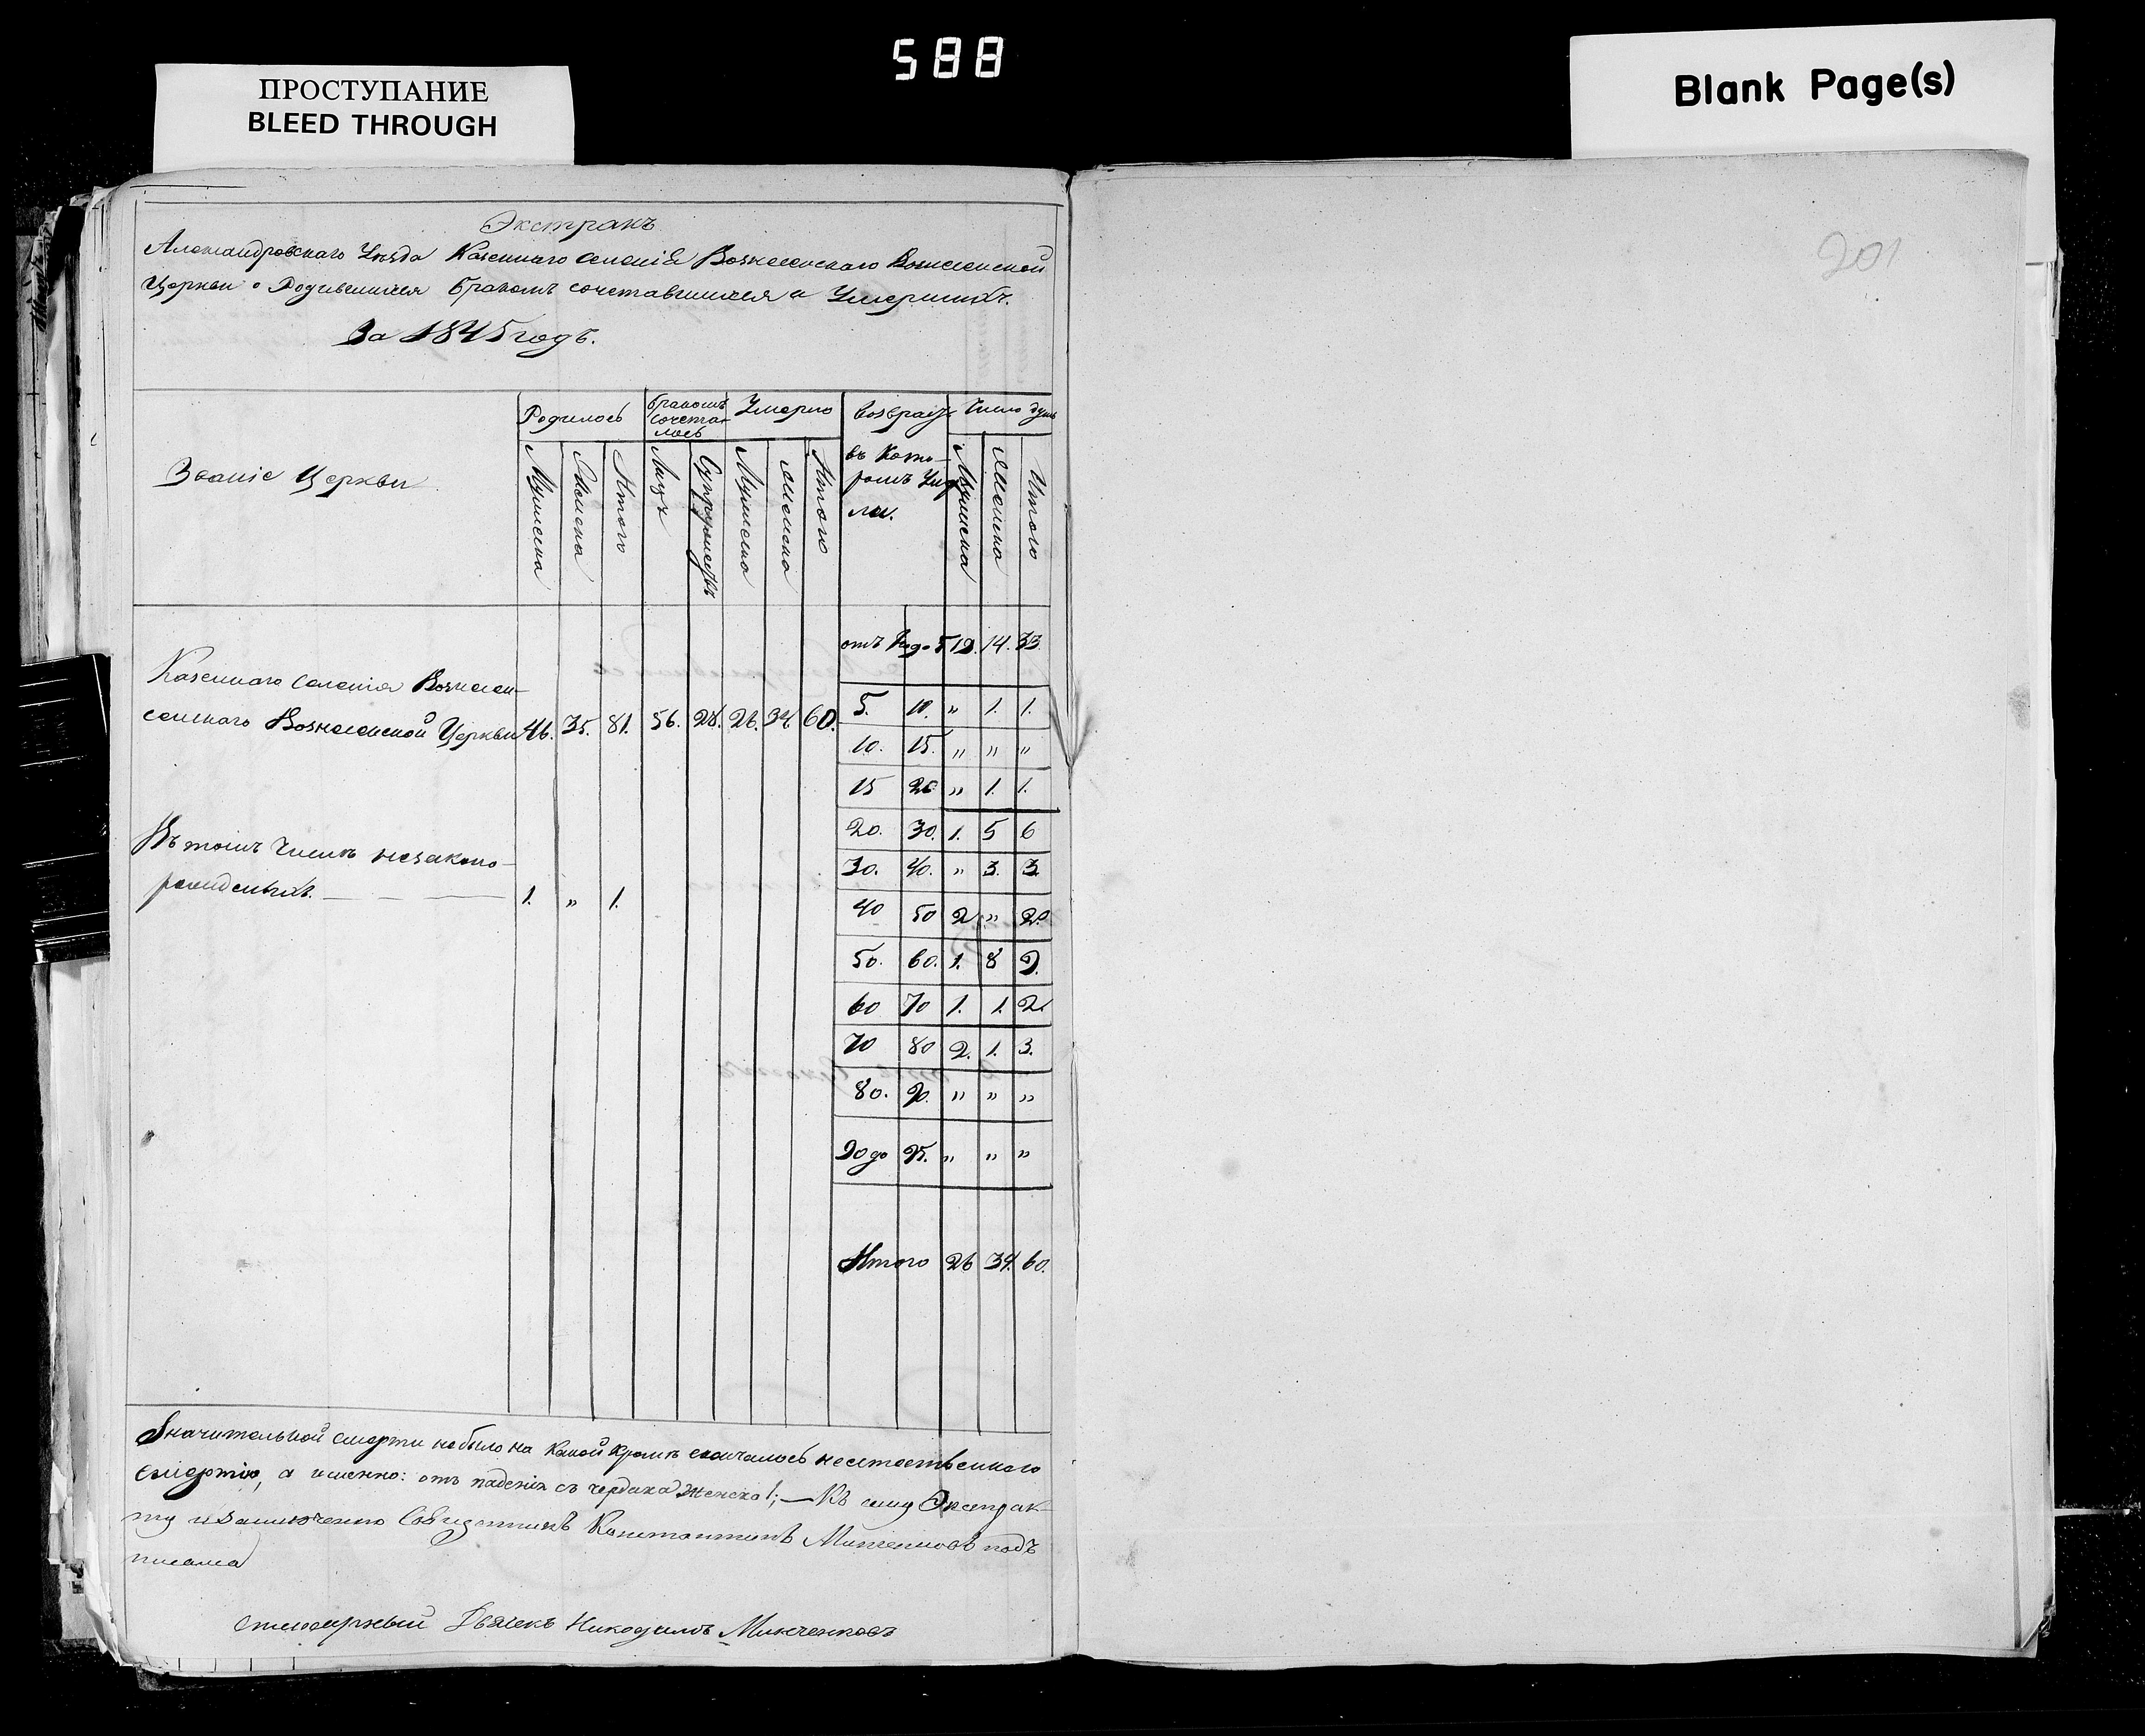 588
ПРОСТУПАНИЕ
BLEED THROUGH
Blank Page(s)
201
Экстрактъ
Александровскаго Уѣзда Казеннаго селенія Вознесенскаго Вознесенской
Церкви о Родившихся бракомъ сочетавшихся и Умершихъ.
За 1845 годъ.
Званіе Церкви
Родилось
бракомъ сочета-
лось
Умерло
возрастъ
въ кото-
ромъ Умер
ли.
Число душъ
Мужеска Женска Итого Лицъ Супружествъ Мужеска Женска Итого Мужеска Женска Итого
Казеннаго селенія Вознесен-
сенскаго Вознесенской Церкви 46. 35. 81. 56. 28. 26. 34. 60.
Въ томъ числѣ незаконо-
рожденныхъ. — — — 1. " 1.
отъ до 5 19. 14. 33.
5. 10. " 1. 1.
10. 15. " " "
15 20 " 1. 1.
20. 30. 1. 5 6
30. 40. " 3. 3
40 50 2 " 2
50. 60. 1. 8 9.
60 70 1. 1. 2
70 80 2. 1. 3.
80. 90. " " "
90 до 95. " " "
Итого 26 34. 60.
Значительной смерти небыло на какой кромѣ скончалось неестественного
смертію, а именно: отъ паденія съ чердака женска 1; — Къ сему Экстрак-
ту Константинъ Минченковъ подъ
писался
Дьячекъ Никодимъ Минченковъ